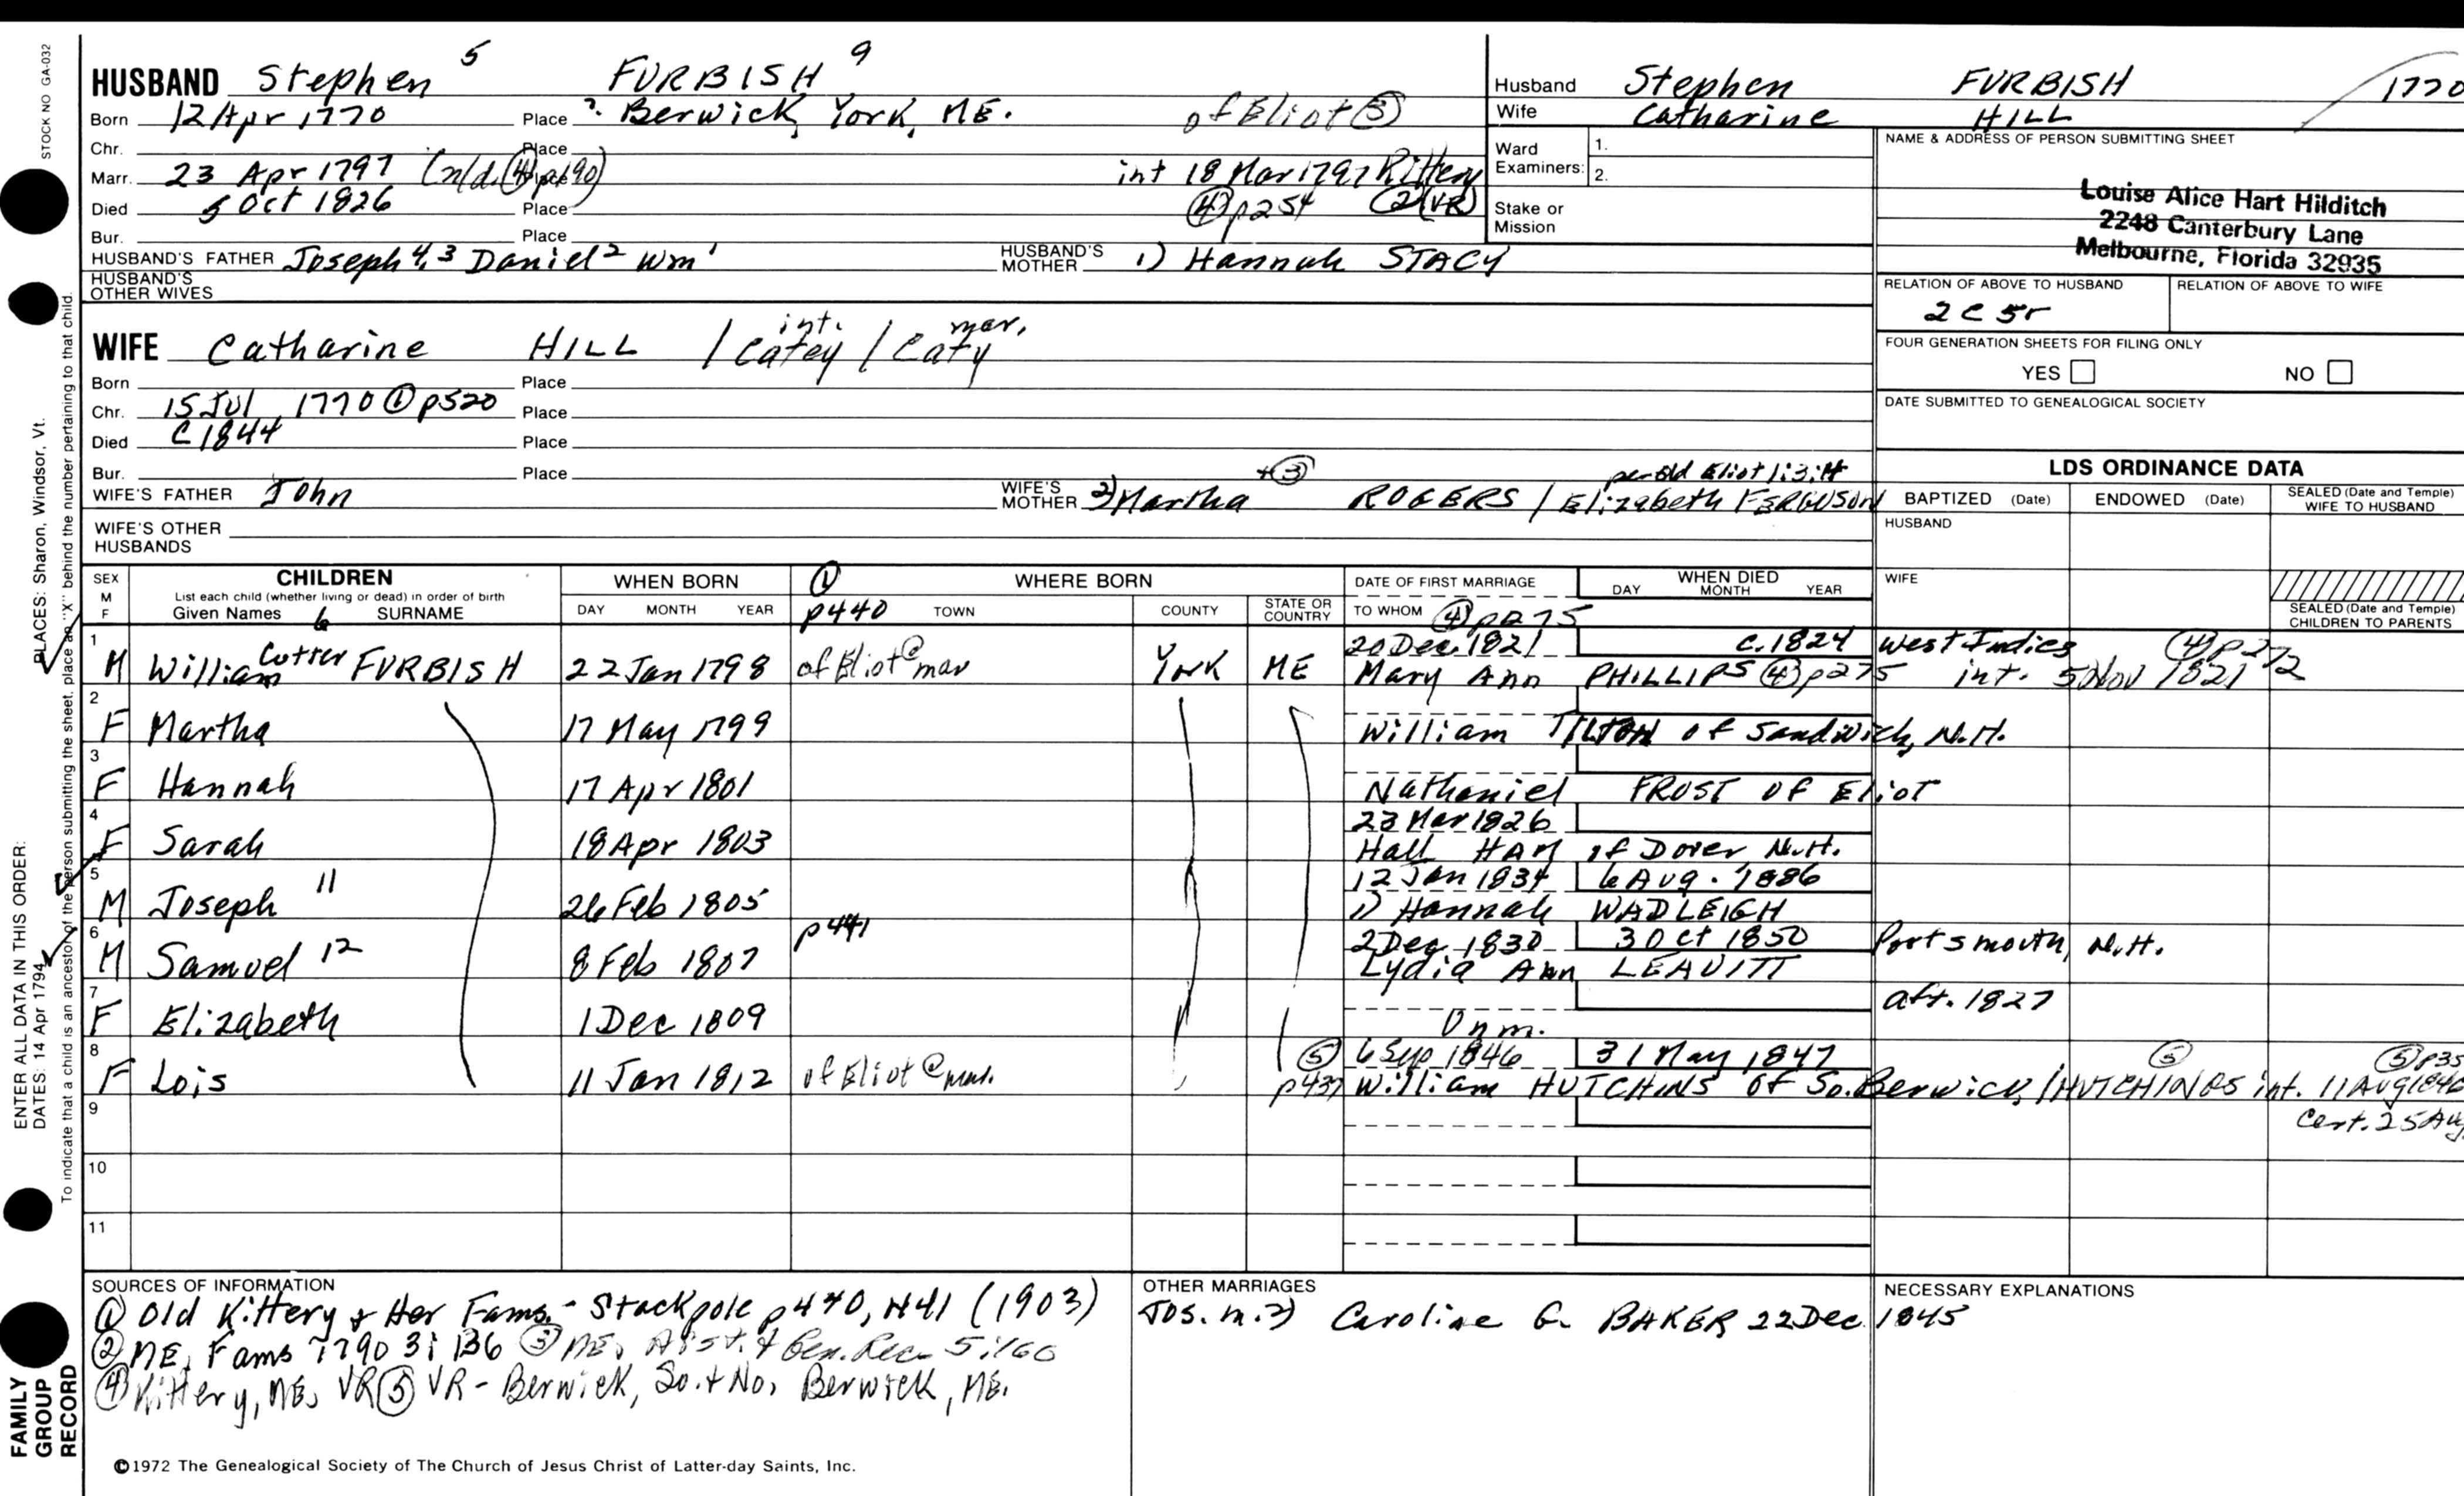 STOCK NO GA-032
HUSBAND Stephen 5 FURBISH 9
Born 12 Apr 1770 Place ? Berwick, York, ME. of Eliot (3)
Chr. Place
Marr. 23 Apr 1797 (n/d. (4) p190) Place int 18 Mar 1797 Kittery
Died 5 Oct 1826 Place (4) p254 (2) (VR)
Bur. Place
HUSBAND'S FATHER Joseph 4,3 Daniel 2 Wm 1 HUSBAND'S MOTHER 1) Hannah STACY
HUSBAND'S OTHER WIVES
Husband Stephen FURBISH 1770
Wife Catharine HILL
Ward Examiners: 1.
2.
Stake or Mission
NAME & ADDRESS OF PERSON SUBMITTING SHEET
Louise Alice Hart Hilditch
2248 Canterbury Lane
Melbourne, Florida 32935
RELATION OF ABOVE TO HUSBAND RELATION OF ABOVE TO WIFE
2C5r
FOUR GENERATION SHEETS FOR FILING ONLY
YES NO
DATE SUBMITTED TO GENEALOGICAL SOCIETY
int. mar.
WIFE Catharine HILL / Catey / Caty
Born Place
Chr. 15 Jul 1770 (1) p520 Place
Died C 1844 Place
Bur. Place
+(3) per Old Eliot 1:3:
WIFE'S FATHER John WIFE'S MOTHER 2) Martha ROGERS / Elizabeth FERGUSON
WIFE'S OTHER HUSBANDS
LDS ORDINANCE DATA
BAPTIZED (Date) ENDOWED (Date) SEALED (Date and Temple) WIFE TO HUSBAND
HUSBAND
WIFE
SEALED (Date and Temple) CHILDREN TO PARENTS
SEX M F CHILDREN WHEN BORN (1) WHERE BORN DATE OF FIRST MARRIAGE WHEN DIED
List each child (whether living or dead) in order of birth
Given Names 6 SURNAME DAY MONTH YEAR p440 TOWN COUNTY STATE OR COUNTRY TO WHOM (4) p275 DAY MONTH YEAR
1 20 Dec 1821 c. 1824 West Indies (4) p272
M William Cotter FURBISH 22 Jan 1798 of Eliot @ mar York ME Mary Ann PHILLIPS (4) p275 int. 5 Nov 1821
2
F Martha 17 May 1799 William TILTON of Sandwich, N.H.
3
F Hannah 17 Apr 1801 Nathaniel FROST of Eliot
4 23 Mar 1826
F Sarah 18 Apr 1803 Hall HAM of Dover N.H.
5 12 Jan 1834 6 Aug. 1886
M Joseph 11 26 Feb 1805 1) Hannah WADLEIGH
6 p441 2 Dec 1830 3 Oct 1850 Portsmouth, N.H.
M Samuel 12 8 Feb 1807 Lydia Ann LEAVITT
7 aft. 1827
F Elizabeth 1 Dec 1809 Unm.
8 (5) 6 Sep 1846 31 May 1847 (5) (5) p35
F Lois 11 Jan 1812 of Eliot @ mar. p437 William HUTCHINS of So. Berwick, /HUTCHINGS int. 11 Aug 1846
9 Cert. 25 Aug
10
11
SOURCES OF INFORMATION
(1) Old Kittery & Her Fams. - Stackpole p440, 441 (1903)
(2) ME. Fams 1790 3:136 (3) ME. Hist. & Gen. Rec. 5:160
(4) Kittery, ME. VR (5) VR - Berwick, So. + No. Berwick, ME.
OTHER MARRIAGES
Jos. m. 2) Caroline G. BAKER 22 Dec 1845
NECESSARY EXPLANATIONS
©1972 The Genealogical Society of The Church of Jesus Christ of Latter-day Saints, Inc.
FAMILY GROUP RECORD
ENTER ALL DATA IN THIS ORDER:
DATES: 14 Apr 1794
PLACES: Sharon, Windsor, Vt.
To indicate that a child is an ancestor of the person submitting the sheet, place an "X" behind the number pertaining to that child.